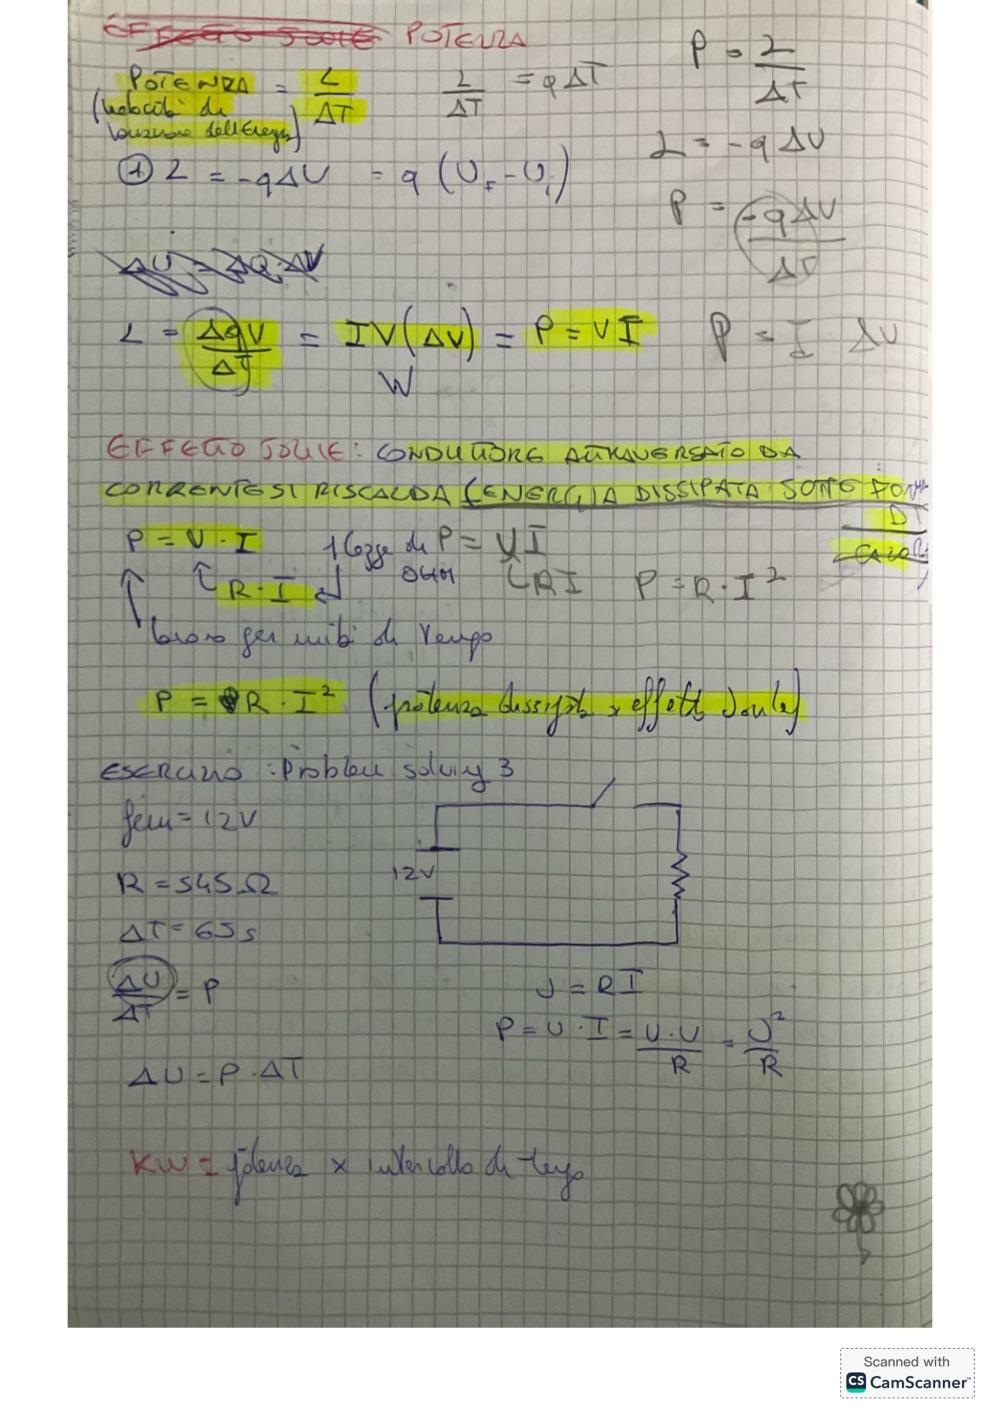 EFFETTO JOULE POTENZA
POTENZA = L/ΔT
(velocità di
dell'Energia)
L/ΔT = qΔT
P = L/ΔT
L = -qΔU
P = -qΔU/ΔT
① L = -qΔU = q (U_F - U_i)
ΔU = ΔQ·ΔV
L = ΔqV/ΔT = IV(ΔV) = P = VI
W
P = I ΔU
EFFETTO JOULE: CONDUTTORE ATTRAVERSATO DA
CORRENTE SI RISCALDA (ENERGIA DISSIPATA SOTTO FORMA
DI
CALORE)
P = V · I
1 Legge di
OHM
R · I
P = VI
RI
P = R · I²
lavoro per unità di tempo
P = R · I² (potenza dissipata x effetto Joule)
ESERCIZIO : Problem solving 3
fem = 12V
R = 545 Ω
ΔT = 65s
12V
ΔU/ΔT = P
ΔU = P · ΔT
U = RI
P = U · I = U·U/R = U²/R
KW = potenza x intervallo di tempo
Scanned with
CS CamScanner